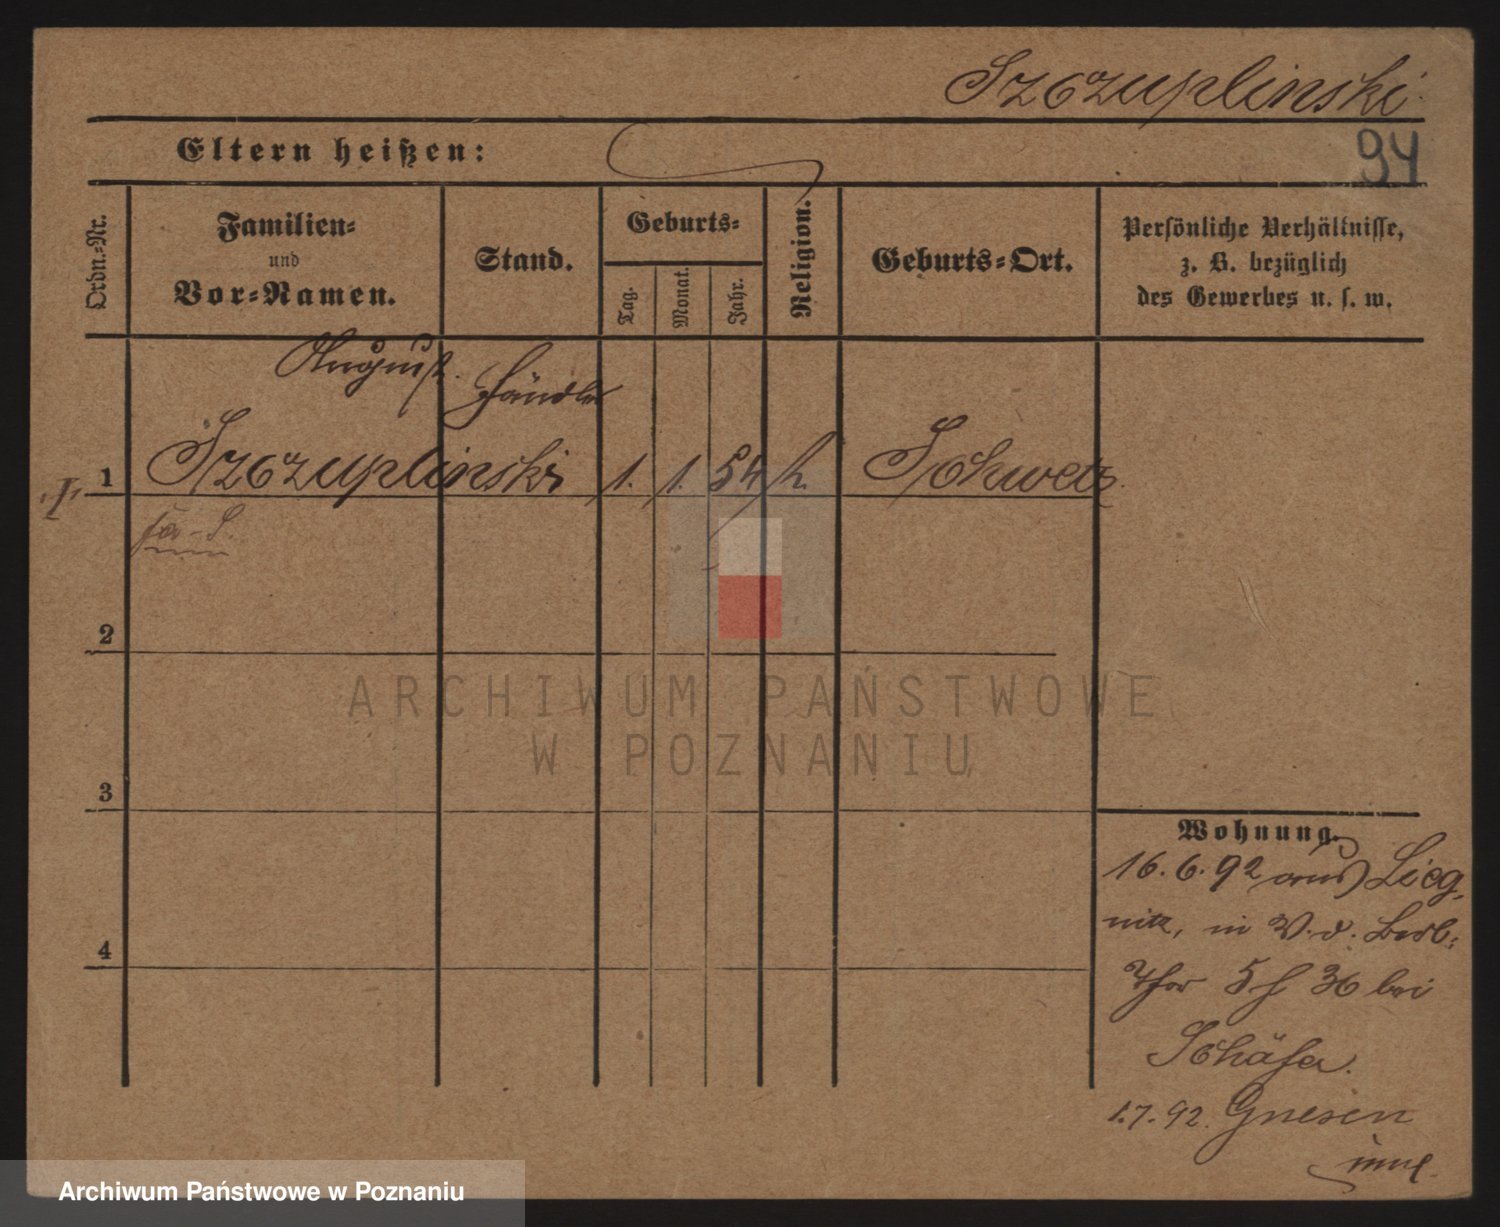 Szczuplinski
94
Eltern heißen:
Ordn.-Nr.
Familien-
und
Vor-Namen.
Stand.
Geburts-
Tag.
Monat.
Jahr.
Religion.
Geburts-Ort.
Persönliche Verhältnisse,
z. B. bezüglich
des Gewerbes u. s. w.
August
Händler
1
Szczuplinski
1.
1.
54
k.
Schwetz.
2
3
4
Wohnung.
16.6.92 aus Lieg-
nitz, in W. d. Berl.
Thor 5 f 36 bei
Schäfer.
1.7.92. Gnesen
ARCHIWUM PAŃSTWOWE
W POZNANIU
Archiwum Państwowe w Poznaniu